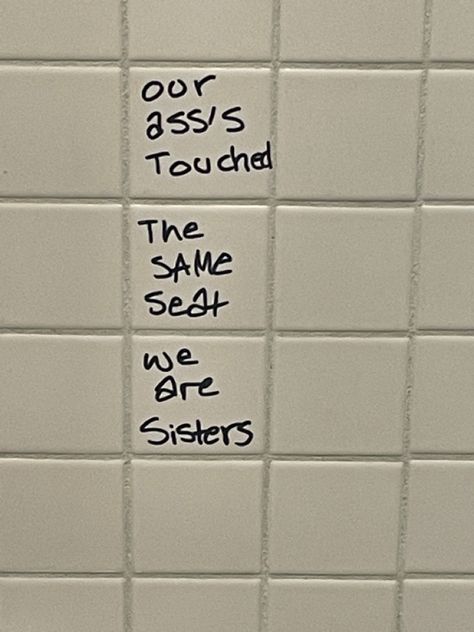 our
ass's
Touched
The
SAMe
Seat
we
are
Sisters